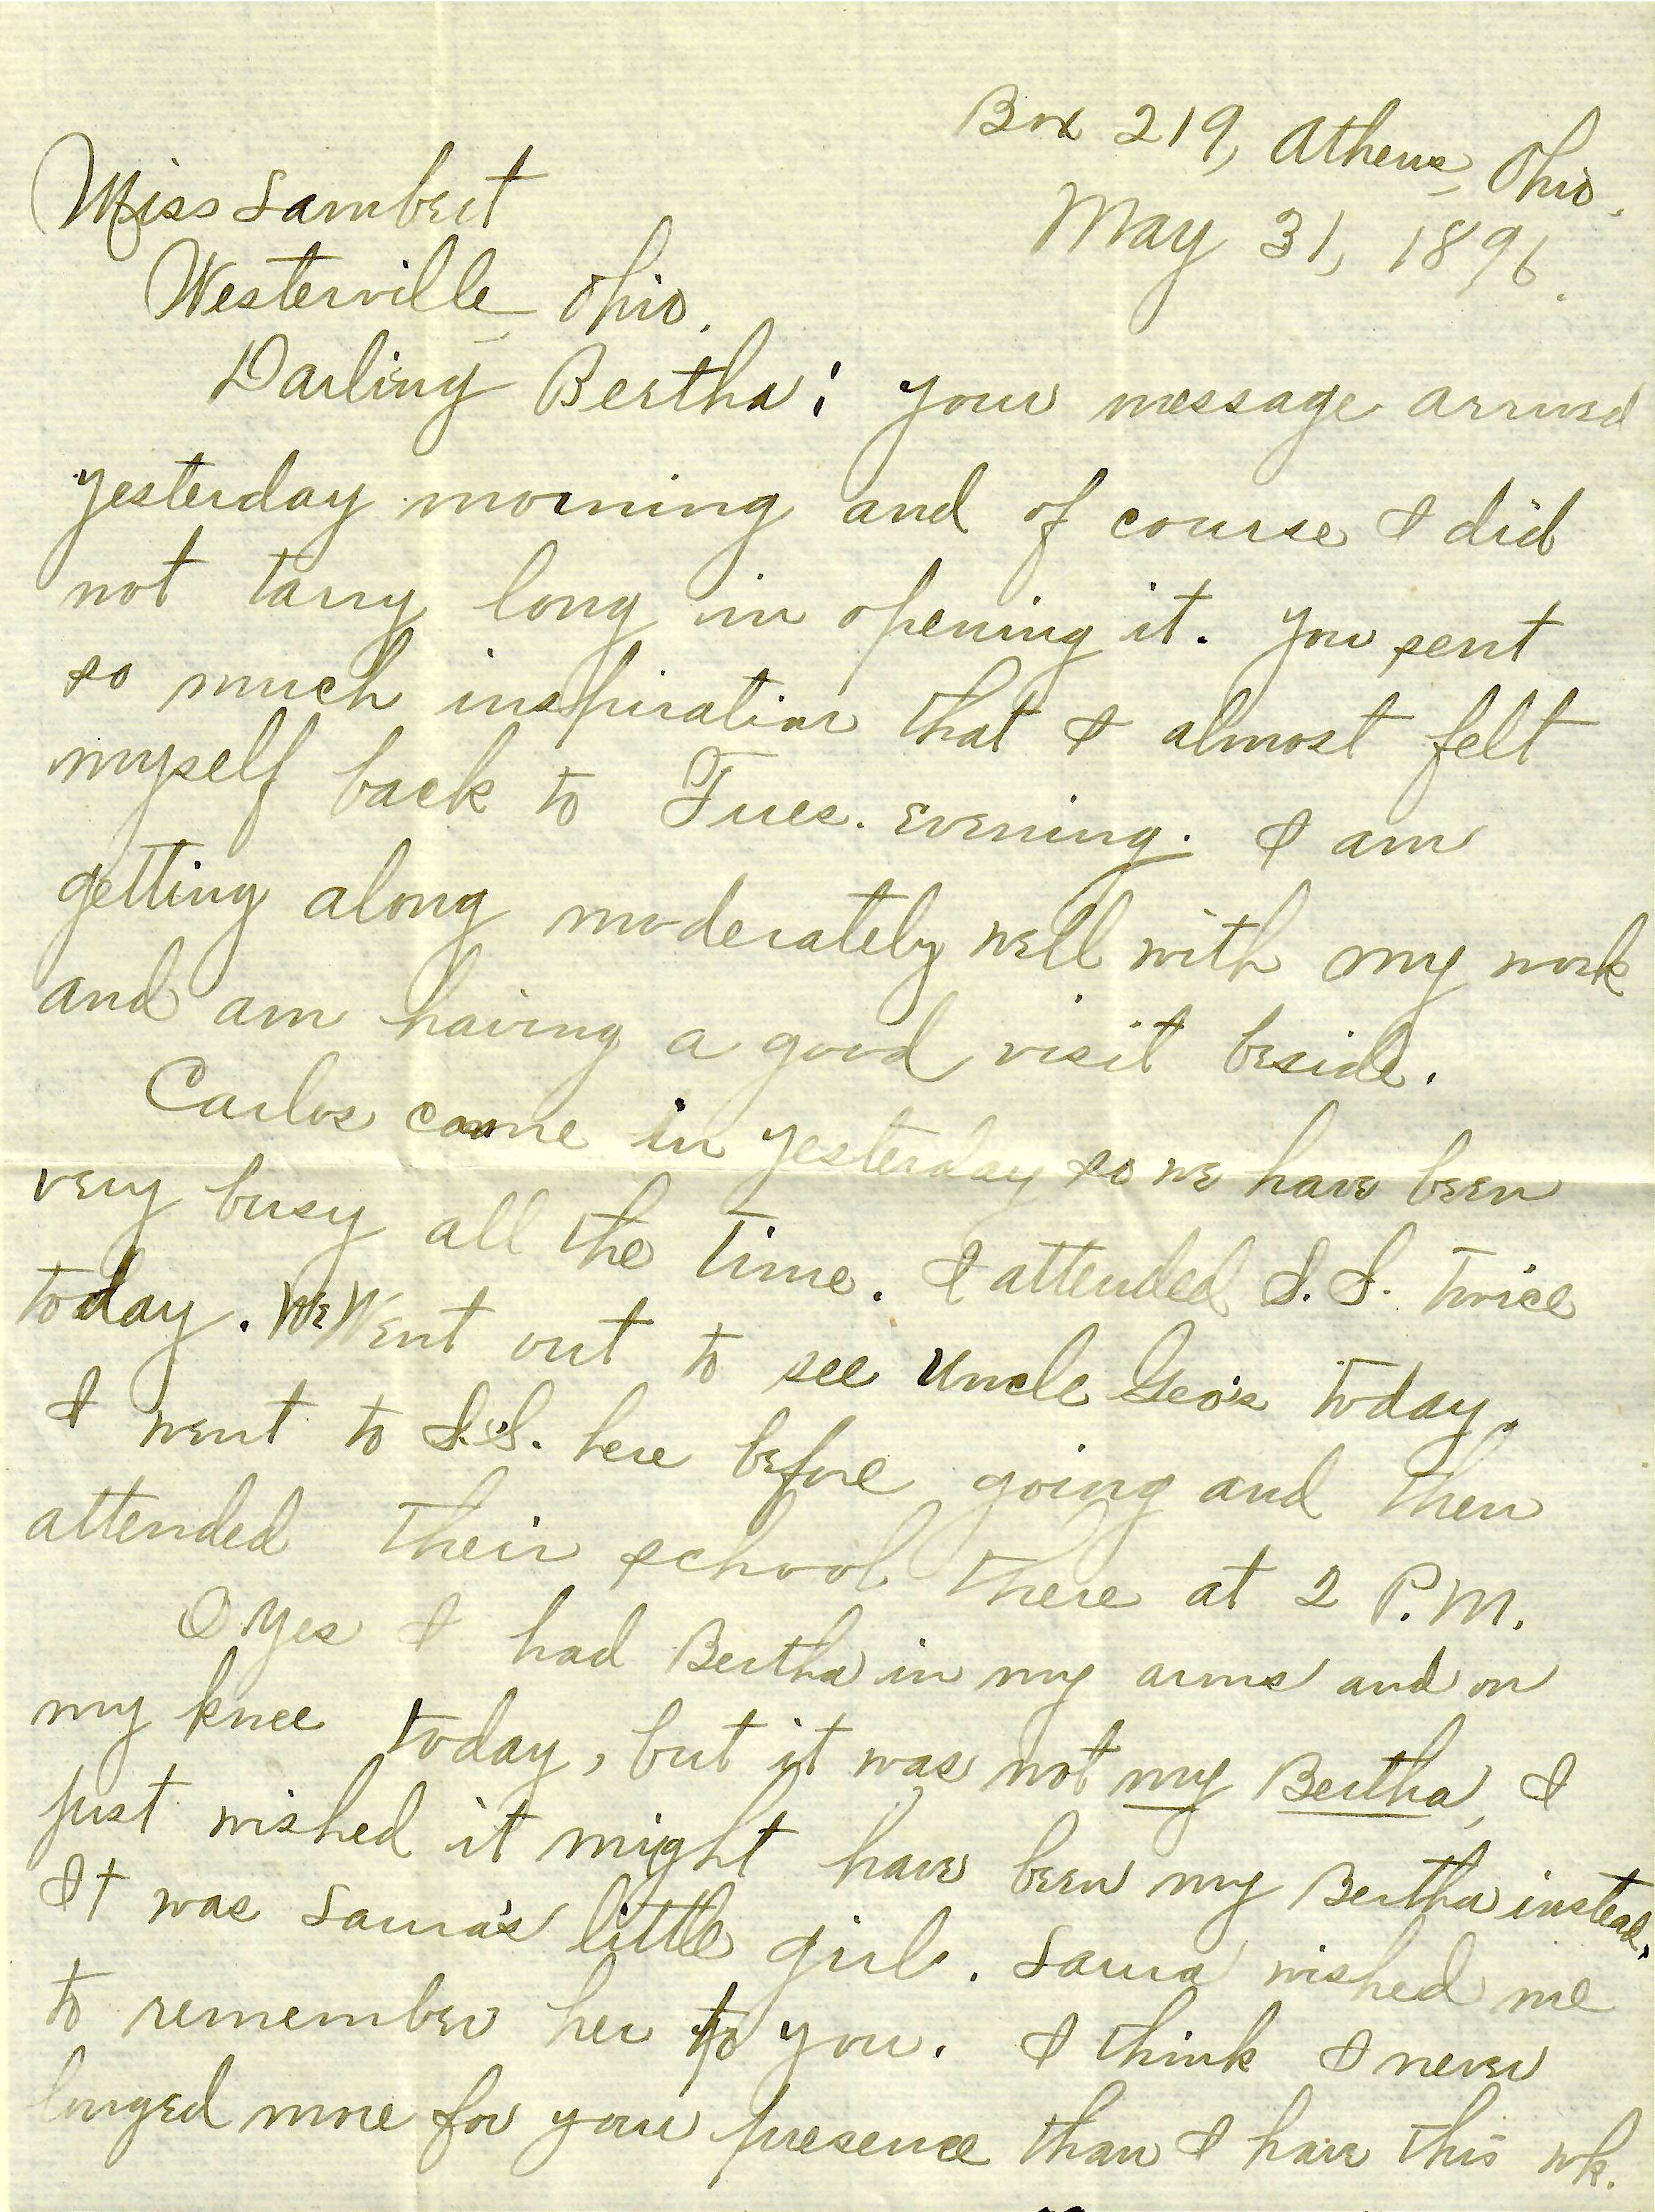 Box 219, Athens, Ohio.
May 31, 1896.
Miss Lambert
Westerville, Ohio.
Darling Bertha: Your message arrived
yesterday morning and of course I did
not tarry long in opening it. You sent
so much inspiration that I almost felt
myself back to Tues. evening. I am
getting along moderately well with my work
and am having a good visit beside.
Carlos came in yesterday so we have been
very busy all the time. I attended S.S. twice
today. We Went out to see Uncle Geo's today.
I went to S.S. here before going and then
attended their school there at 2 P.M.
O yes I had Bertha in my arms and on
my knee today, but it was not my Bertha, I
just wished it might have been my Bertha instead.
It was Laura's little girl. Laura wished me
to remember her to you. I think I never
longed more for your presence than I have this wk.